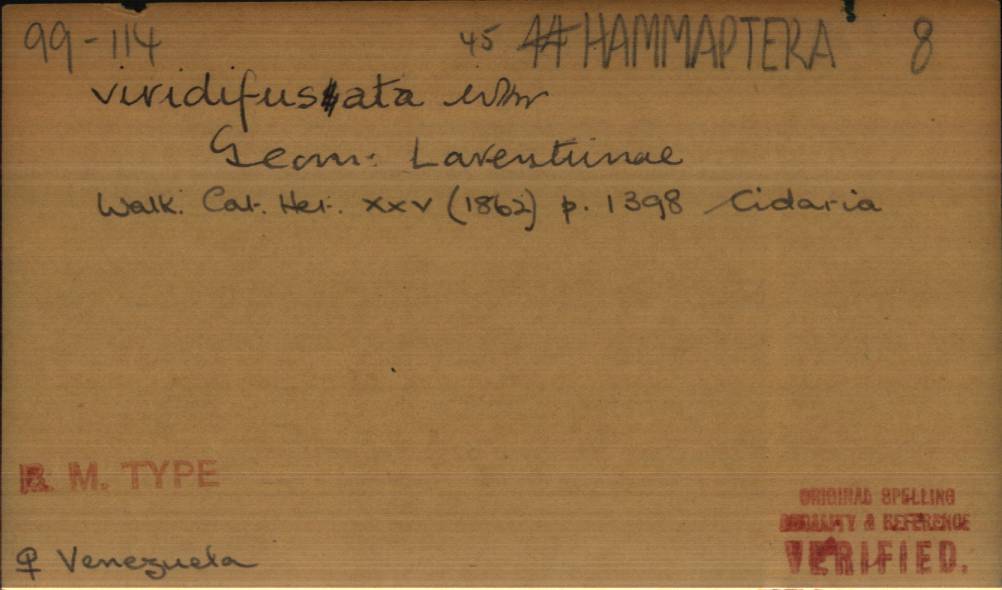 99-114 45 44 HAMMAPTERA 8
viridifusata Wlkr
Geom: Larentiinae
Walk. Cat. Het. XXV (1862) p. 1398 Cidaria
B. M. TYPE
ORIGINAL SPELLING
LOCALITY & REFERENCE
VERIFIED.
♀ Venezuela